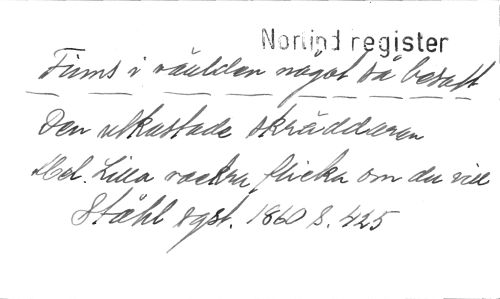 Norlind register
Finns i världen något så besatt
Den utkastade skräddaren
Mel. Lilla vackra flicka om du vill
Ståhl sgst. 1860 s. 425